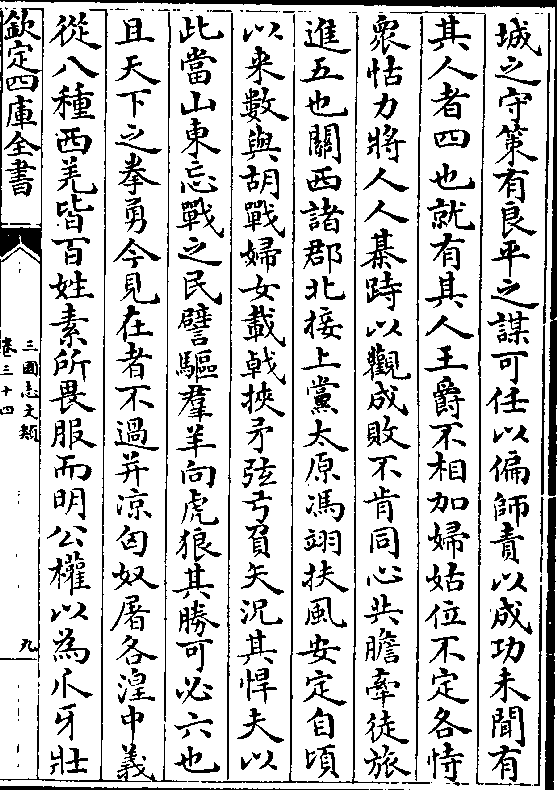 城之守策有良平之謀可任以偏師責以成功未聞有
其人者四也就有其人王爵不相加婦姑位不定各恃
衆怙力將人人棊跱以觀成敗不肯同心共膽牽徒旅
進五也關西諸郡北接上黨太原馮翊扶風安定自頃
以來數與胡戰婦女載戟挾矛弦弓負矢況其悍夫以
此當山東忘戰之民譬驅羣羊向虎狼其勝可必六也
且天下之拳勇今見在者不過并凉匈奴屠各湟中義
從八種西羌皆百姓素所畏服而明公權以為爪牙壯
欽定四庫全書
三國志文類
卷三十四
九